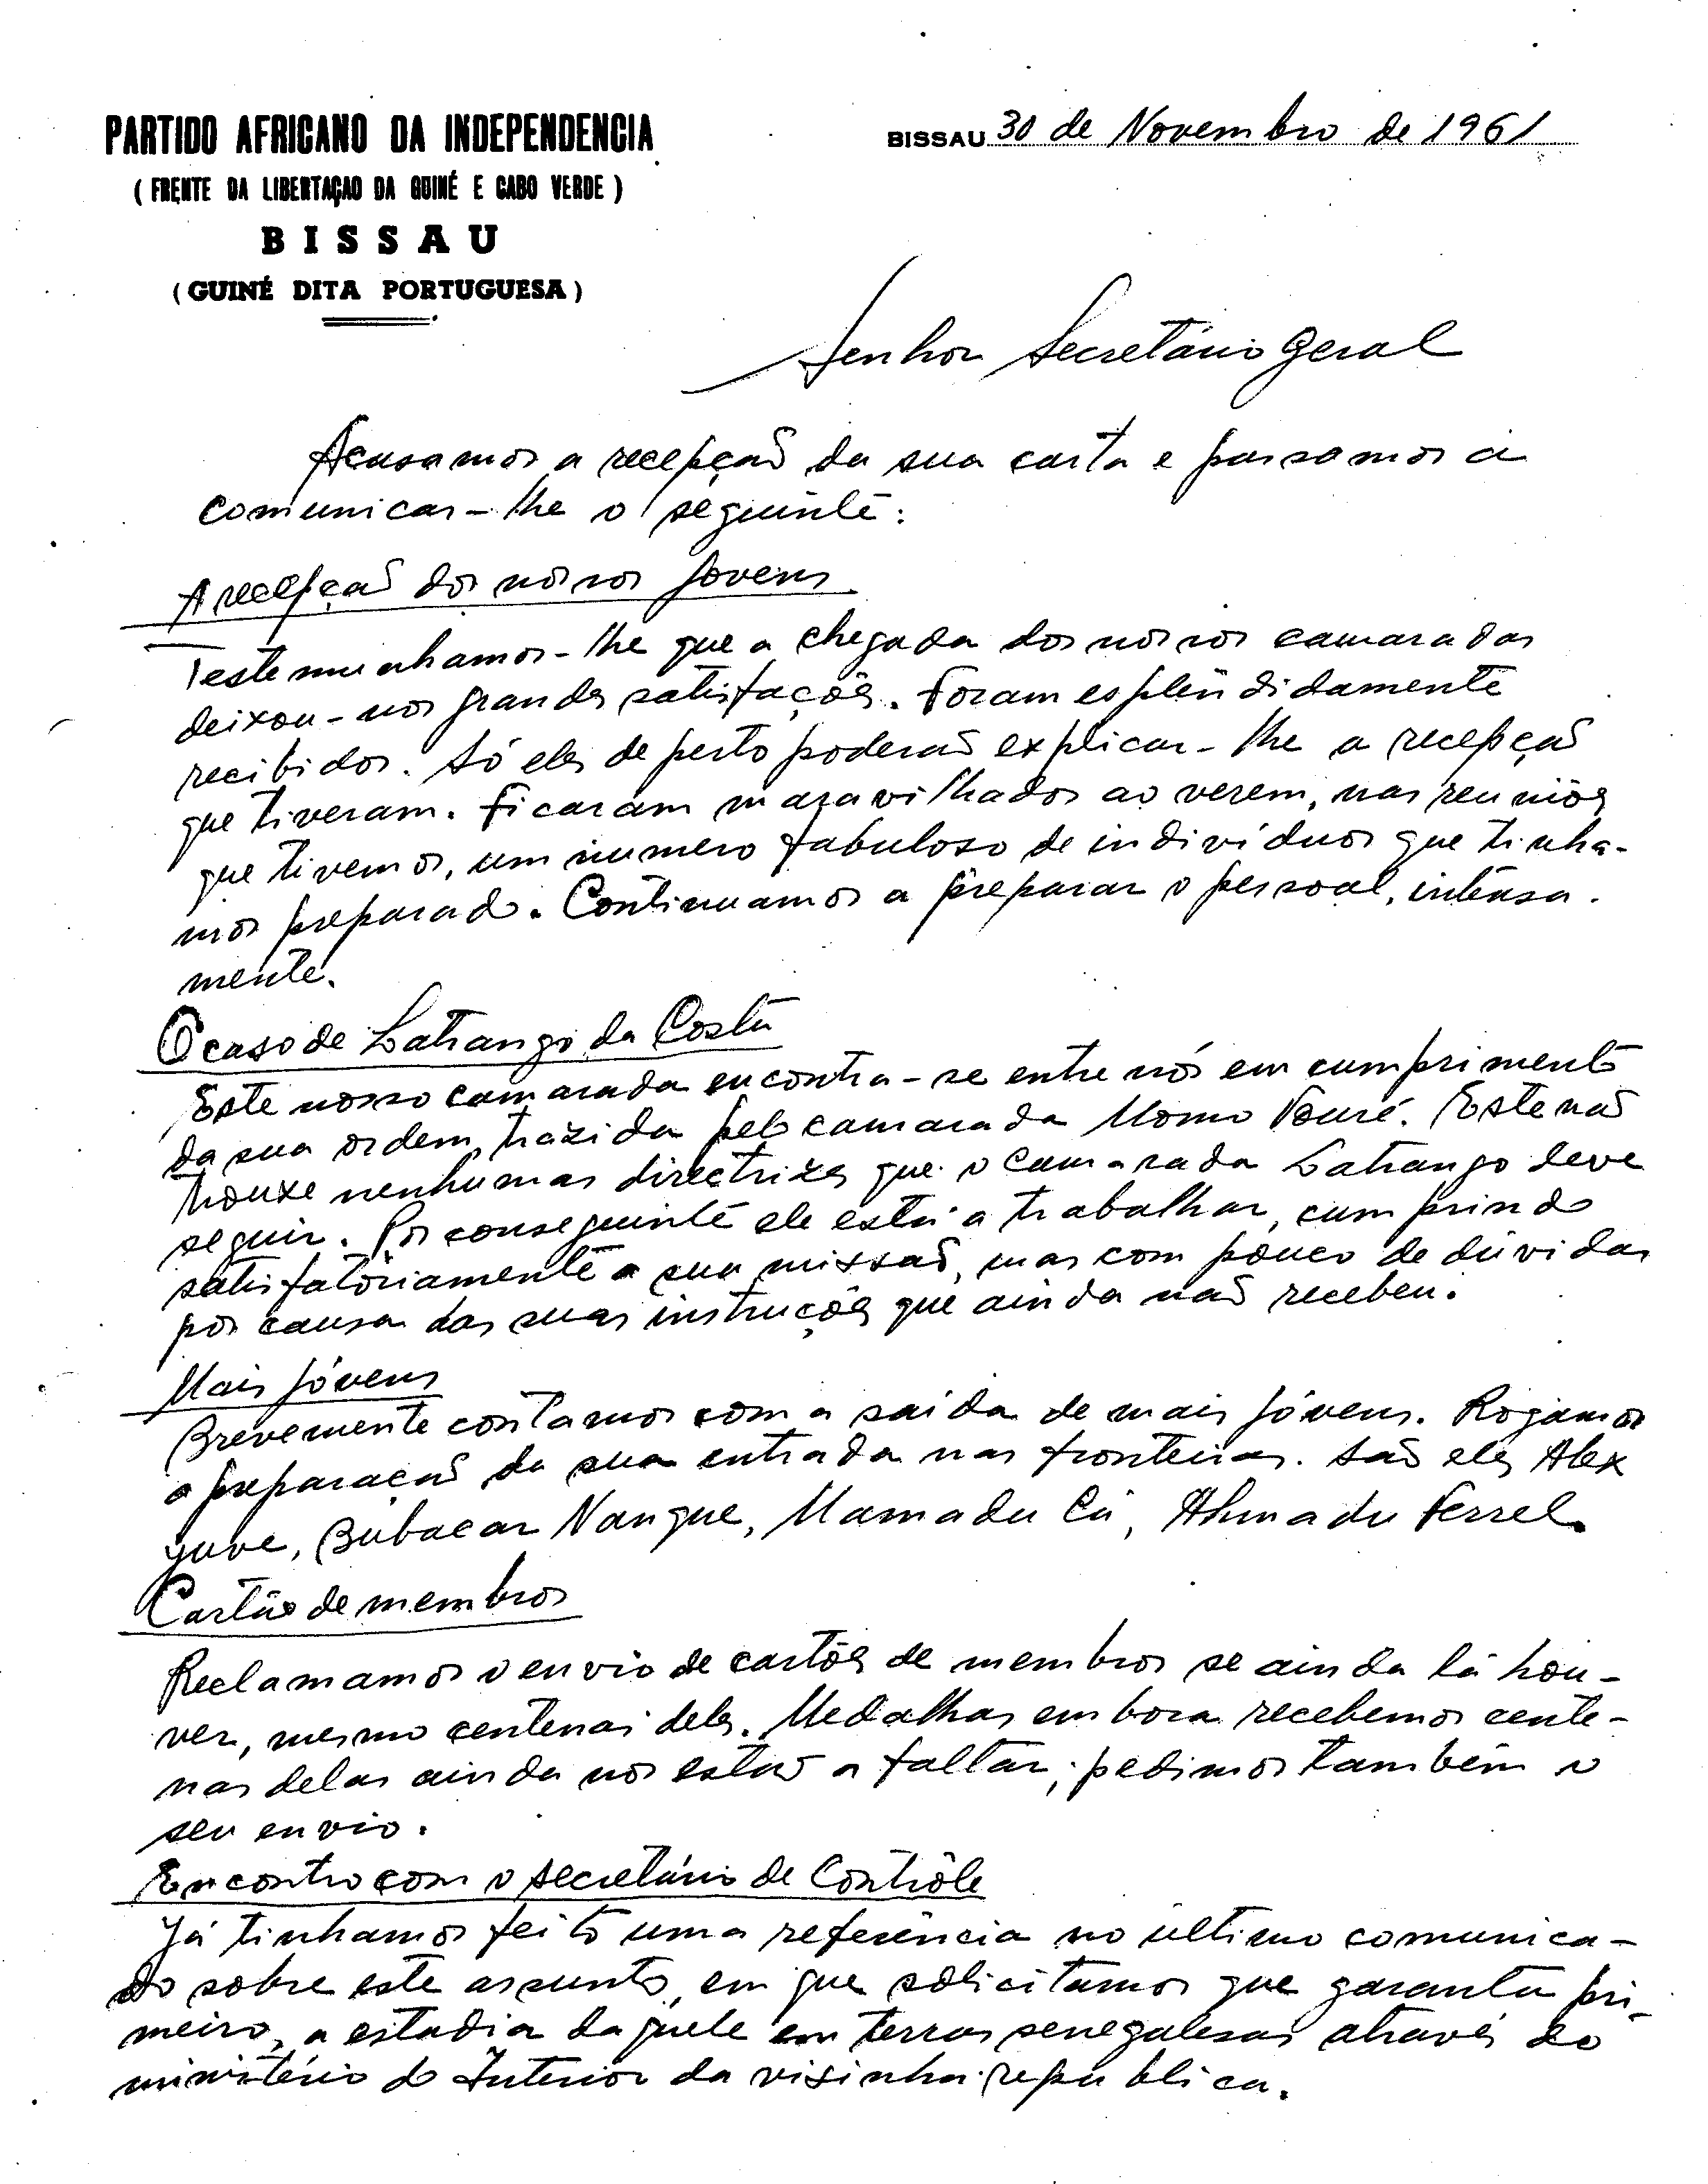 PARTIDO AFRICANO DA INDEPENDENCIA
( FRENTE DA LIBERTAÇAO DA GUINÉ E CABO VERDE )
BISSAU
(GUINÉ DITA PORTUGUESA)
BISSAU 30 de Novembro de 1961
Senhor Secretário Geral
Acusamos a recepção da sua carta e passamos a
comunicar-lhe o seguinte:
A recepção dos nossos jovens
Testemunhamos-lhe que a chegada dos nossos camaradas
deixou-nos grandes satisfações. Foram esplendidamente
recibidos. Só eles de perto poderão explicar-lhe a recepção
que tiveram. Ficaram maravilhados ao verem, nas reuniões
que tivemos, um numero fabuloso de indivíduos que tinha-
mos preparado. Continuamos a preparar o pessoal, intensa-
mente.
O caso de Latrango da Costa
Este nosso camarada encontra-se entre nós em cumprimento
da sua ordem, trazida pelo camarada Momo Touré. Este não
trouxe nenhumas directrizes que o camarada Latrango deve
seguir. Por conseguinte ele está a trabalhar, cumprindo
satisfatóriamente a sua missão, mas com pouco de dúvidas
por causa das suas instruções que ainda não recebeu.
Mais jóvens
Brevemente contamos com a saída de mais jóvens. Rogamos
a preparação da sua entrada nas fronteiras. São eles Alex
Bubacar Nangue, Mamadu Cá, Ahmadu Ferrel.
Cartão de membros
Reclamamos o envio de cartões de membros se ainda lá hou-
ver, mesmo centenas deles. Medalhas embora recebemos cente-
nas delas ainda nos estão a faltar; pedimos também o
seu envio.
Encontro com o secretário de Contrôle
Já tinhamos feito uma referência no último comunica-
do sobre este assunto, em que solicitamos que garanta pri-
meiro, a estadia daquele em terras senegalesas através do
ministério do Interior da visinha republica.